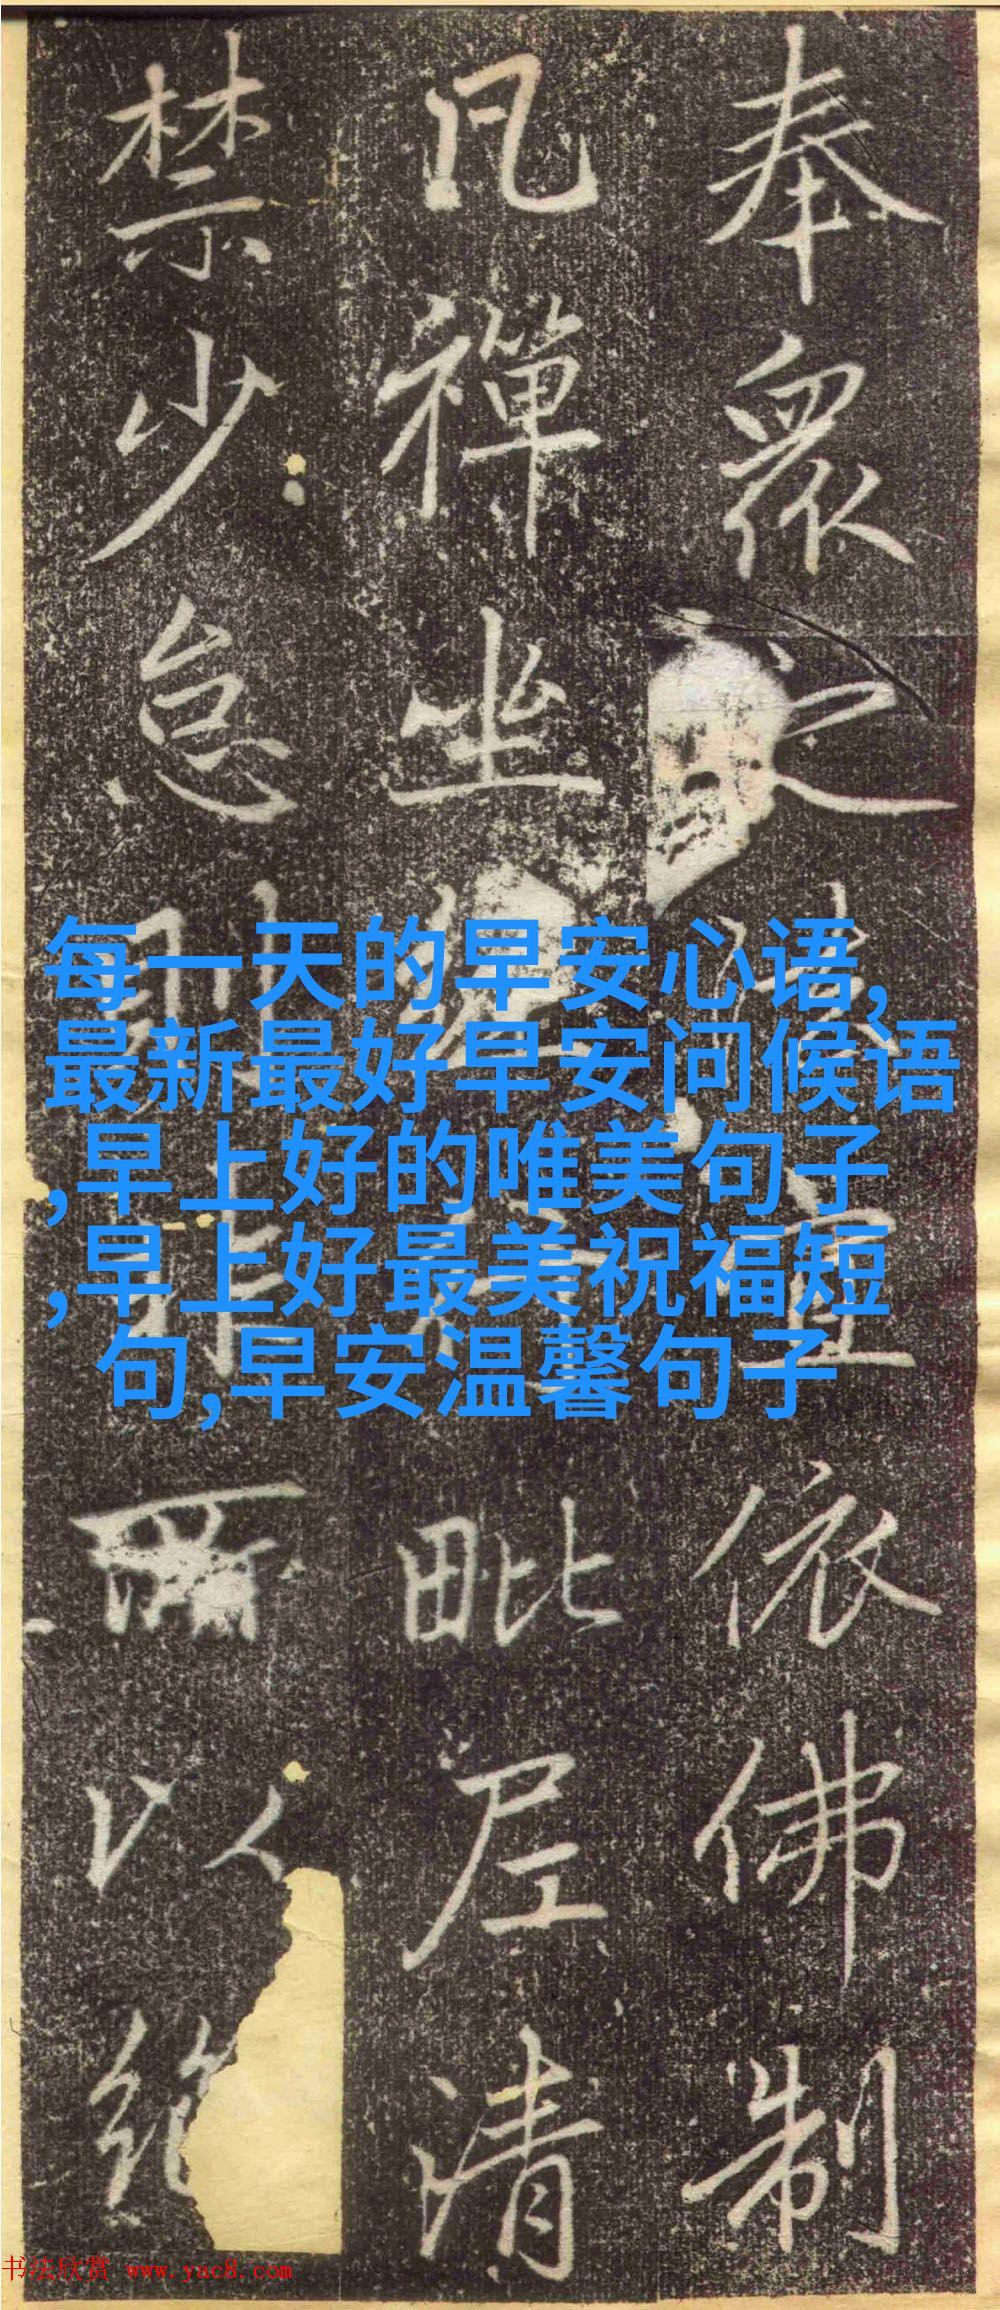 奉眾依佛制
凡禪坐毗尼清
禁少怠則非以
每一天的早安心语,
最新最好早安问候语
,早上好的唯美句子
,早上好最美祝福短
句,早安温馨句子
书法欣赏 www.yac8.com